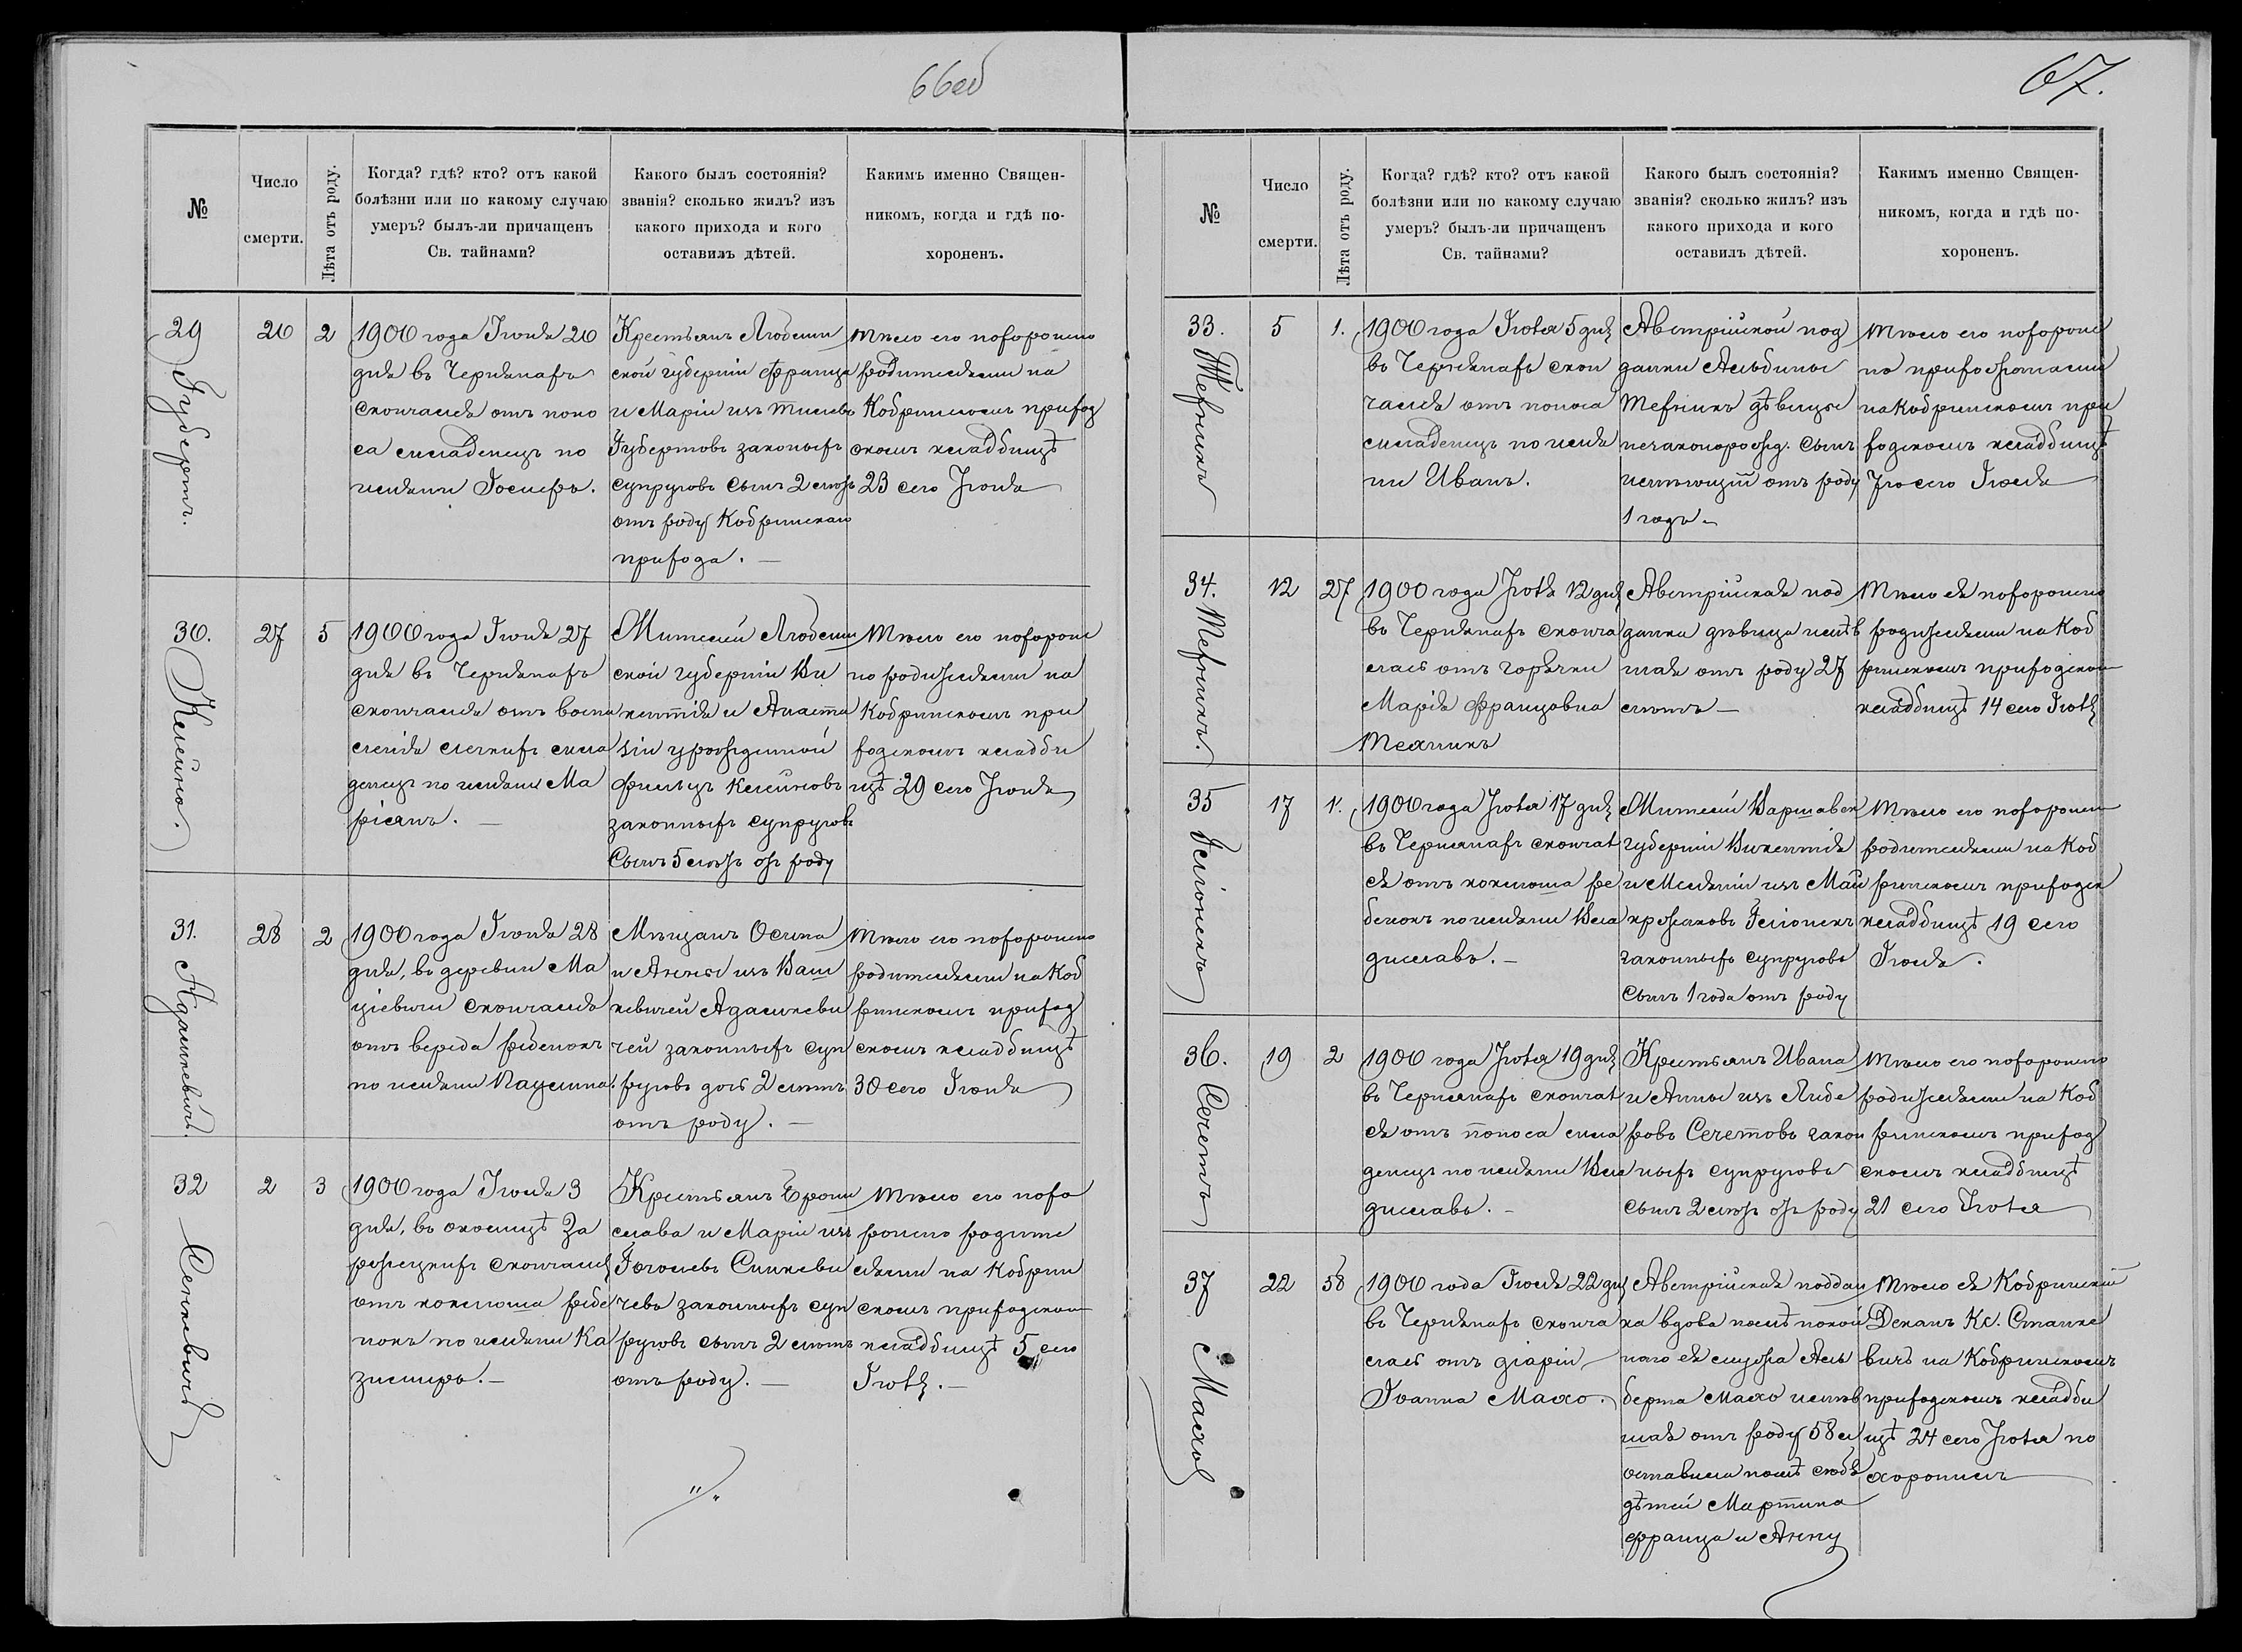 66об
№
Число
смерти.
Лѣта отъ роду.
Когда? гдѣ? кто? отъ какой
болѣзни или по какому случаю
умеръ? былъ-ли причащенъ
Св. тайнами?
Какого былъ состоянія?
званія? сколько жилъ? изъ
какого прихода и кого
оставилъ дѣтей.
Какимъ именно Священ-
никомъ, когда и гдѣ по-
хороненъ.
29
Губертъ.
20
2
1900 года Іюня 20
дня въ Чернянахъ
скончался отъ поно
са младенецъ по
имени Іосифъ.
Крестьянъ Люблин
ской губерніи Франца
и Маріи изъ
Губертовъ законныхъ
супруговъ сынъ 2 лѣтъ
отъ роду Кобринскаго
прихода. —
Тѣло его похоронено
родителями на
Кобринскомъ приход
скомъ кладбищѣ
23 сего Іюня
30.
Клейно.
27
5
1900 года Іюня 27
дня въ Чернянахъ
скончался отъ воспа
ленія легкихъ мла
денецъ по имени Ма
ріянъ. —
Мителей Люблин
ской губерніи Ви
кентія и Анаста
зіи урожденной
Фильцъ Клейновъ
законныхъ супруговъ
Сынъ 5 лѣтъ отъ роду
Тѣло его похороне
но родителями на
Кобринскомъ при
ходскомъ кладби
щѣ 29 сего Іюня
31.
Адамкевичъ.
28
2
1900 года Іюня 28
дня, въ деревни Ма
ціевичи скончался
отъ вереда ребенокъ
по имени Паулина.
Мѣщанъ Осипа
и Анны изъ Ваш
кевичей Адамкеви
чей законныхъ суп
руговъ дочь 2 лѣтъ
отъ роду. —
Тѣло его похоронено
родителями на Коб
ринскомъ приход
скомъ кладбищѣ
30 сего Іюня
32
Сенкевичъ
2
3
1900 года Іюля 3
дня, въ околицѣ За
рѣчицкихъ скончался
отъ коклюша ребе
нокъ по имени Ка
зимиръ. —
Крестьянъ Брони
слава и Маріи изъ
законныхъ суп
руговъ сынъ 2 лѣтъ
отъ роду. —
Тѣло его похо
ронено родите
лями на Кобрин
скомъ приходскомъ
кладбищѣ 5 сего
Іюля. —
67.
№
Число
смерти.
Лѣта отъ роду.
Когда? гдѣ? кто? отъ какой
болѣзни или по какому случаю
умеръ? былъ-ли причащенъ
Св. тайнами?
Какого былъ состоянія?
званія? сколько жилъ? изъ
какого прихода и кого
оставилъ дѣтей.
Какимъ именно Священ-
никомъ, когда и гдѣ по-
хороненъ.
33.
Техникъ
5
1.
1900 года Іюля 5 дня
въ Чернянахъ скон
чался отъ поноса
младенецъ по име
ни Иванъ.
Австрійской под
данки Альбины
Техникъ дѣвицы
незаконорожд. сынъ
имѣющій отъ роду
1 годъ —
Тѣло его похороне
но прихожанами
на Кобринскомъ при
ходскомъ кладбищѣ
7го сего Іюля
34.
Техникъ.
12
27
1900 года Іюля 12 дня
въ Чернянахъ сконча
лась отъ горячки
Марія Францовна
Техникъ
Австрійская под
данка дѣвица имѣв
шая отъ роду 27
лѣтъ —
Тѣло ея похоронено
родителями на Коб
ринскомъ приходскомъ
кладбищѣ 14 сего Іюля
35
Гелонекъ
17
1.
1900 года Іюля 17 дня
въ Чернянахъ скончал
ся отъ коклюша ре
бенокъ по имени Вла
диславъ. —
Мителей Варшавск
губерніи Викентія
и Меляніи изъ Май
Гелонекъ
законныхъ супруговъ
сынъ 1 года отъ роду
Тѣло его похоронен
родителями на Коб
ринскомъ приходск
кладбищѣ 19 сего
Іюля.
36.
Сечетъ
19
2
1900 года Іюля 19 дня
въ Чернянахъ скончал
ся отъ поноса мла
денецъ по имени Вла
диславъ. —
Крестьянъ Ивана
и Анны изъ Либе
ровъ Сечетовъ закон
ныхъ супруговъ
сынъ 2 лѣтъ отъ роду
Тѣло его похоронено
родителями на Коб
ринскомъ приход
скомъ кладбищѣ
21 сего Іюля
37
Махо
22
58
1900 года Іюля 22 дня
въ Чернянахъ сконча
лась отъ діаріи
Іоанна Махо.
Австрійская поддан
ка вдова послѣ покой
наго ея мужа Аль
берта Махо имѣв
шая отъ роду 58 л
оставила послѣ себя
дѣтей Мартина
Франца и Анну
Тѣло ея Кобринскій
Деканъ Кс. Станке
вичъ на Кобринскомъ
приходскомъ кладби
щѣ 24 сего Іюля по
хоронилъ